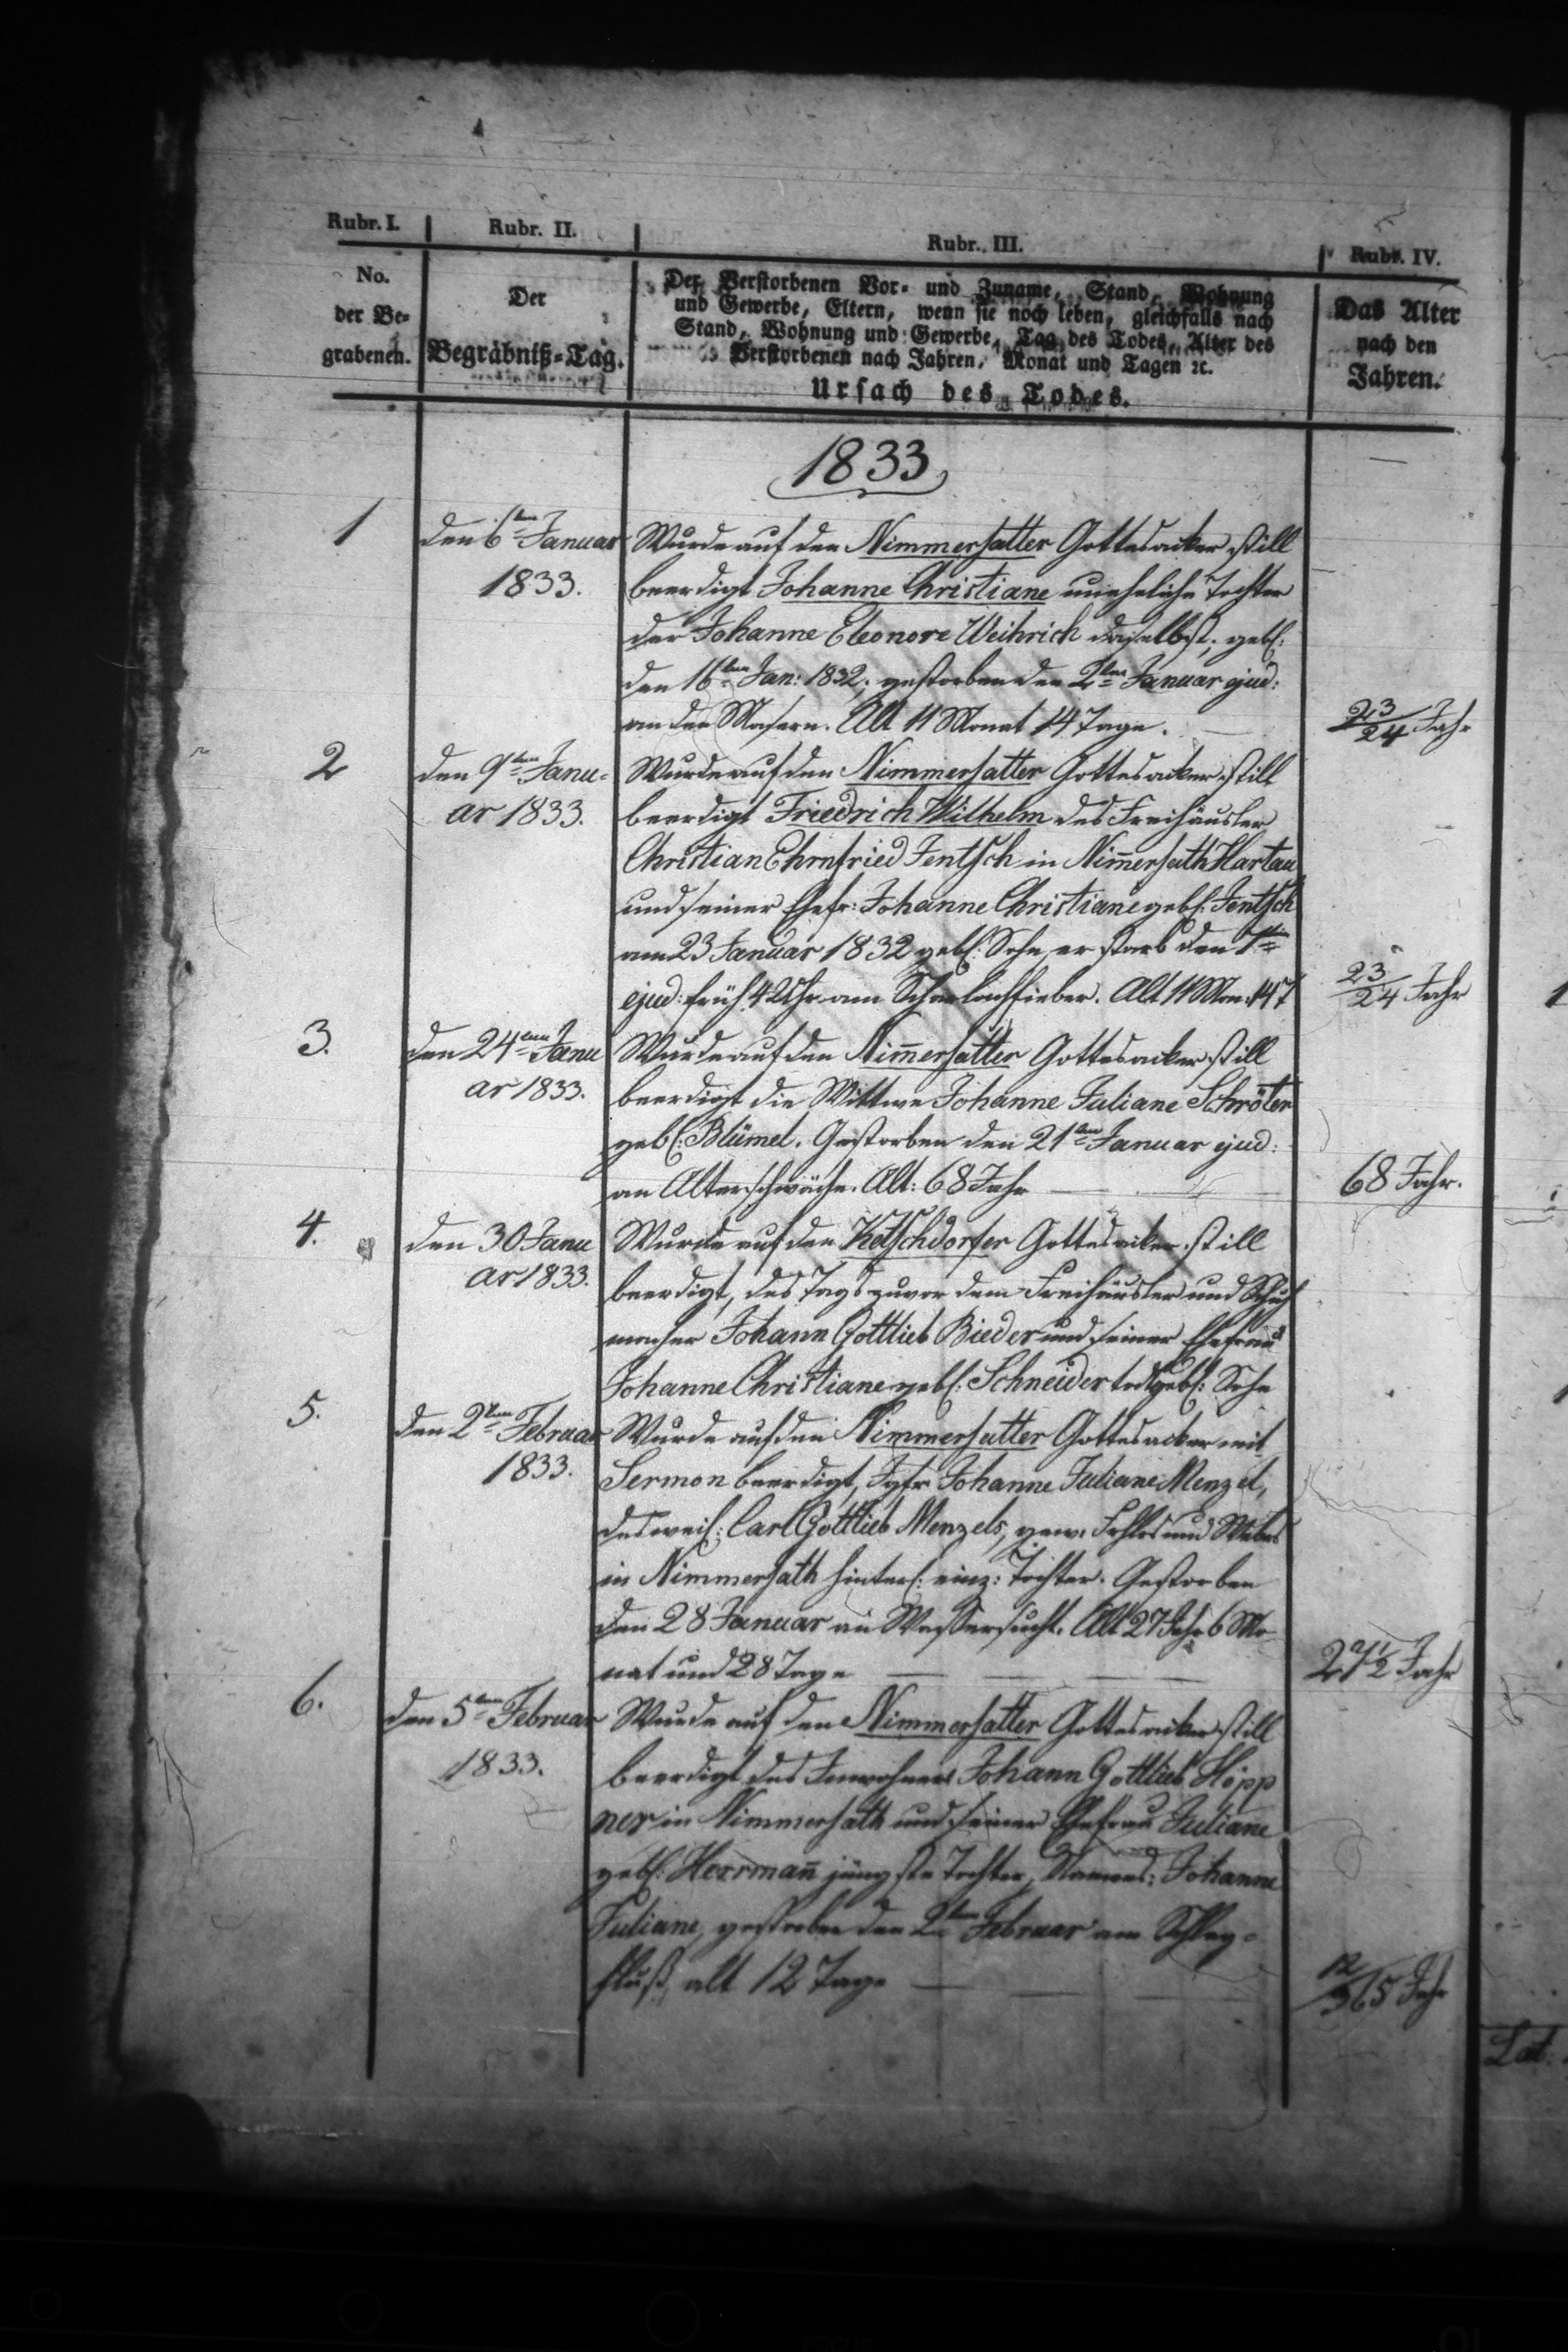 Rubr. I.
Rubr. II.
Rubr. III.
Rubr. IV.
No.
der Be-
grabenen.
Der
Begräbniß-Tag.
Der Verstorbenen Vor- und Zuname, Stand, Wohnung
und Gewerbe, Eltern, wenn sie noch leben, gleichfalls nach
Stand, Wohnung und Gewerbe, Tag des Todes, Alter des
Verstorbenen nach Jahren, Monat und Tagen ꝛc.
Ursach des Todes.
Das Alter
nach den
Jahren.
1833
1
den 6ten Januar
1833.
Wurde auf den Nimmersatter Gottesacker still
beerdigt Johanne Christiane uneheliche Tochter
der Johanne Eleonore Weihrich daselbst, geb:
den 16ten Jan: 1832; gestorben den 2ten Januar ejud:
an den Masern. Alt 11 Monat 14 Tage.
23/24 Jahr
2
den 9ten Janu-
ar 1833.
Wurde auf den Nimmersatter Gottesacker still
beerdigt Friedrich Wilhelm des Freihäusler
Christian Ehrnfried Jentsch in Nim̄ersath Hartau
und seiner Ehefr: Johanne Christiane geb: Jentsch
am 23 Januar 1832 geb: Sohn, er starb den 7ten
ejud: früh 4 Uhr am Scharlachfieber. Alt 11 Mon. 14 T
23/24 Jahr
3.
den 24ten Janu
ar 1833.
Wurde auf den Nim̄ersatter Gottesacker still
beerdigt die Wittwe Johanne Juliane Schröter
geb: Blümel. Gestorben den 21ten Januar ejud:
an Alterschwäche. Alt: 68 Jahr
68 Jahr.
4.
den 30 Janu
ar 1833.
Wurde auf den Ketschdorfer Gottesacker still
beerdigt, des Tags zuvor dem Freihäusler und Schuh
macher Johann Gottlieb Bieder und seiner Ehefrau
Johanne Christiane geb: Schneider todtgeb: Sohn
5.
den 2ten Februar
1833.
Wurde auf den Nimmersatter Gottesacker mit
Sermon beerdigt, Jgfr Johanne Juliane Menzel,
des weil: Carl Gottlieb Menzels, gew. und Weber
in Nimmersath hinterl: einz: Tochter. Gestorben
den 28 Januar an Wassersucht. Alt 27 Jahr 6 Mo-
nat und 28 Tage
27½ Jahr
6.
den 5ten Februar
1833.
Wurde auf den Nimmersatter Gottesacker still
beerdigt des Inwohners Johann Gottlieb Höpp
ner in Nimmersath und seiner Ehefrau Juliane
geb: Herrman̄ jüngste Tochter, Namens: Johanne
Juliane, gestorben den 2ten Februar am Schlag-
fluß, alt 12 Tage
12/365 Jahr
Lat.